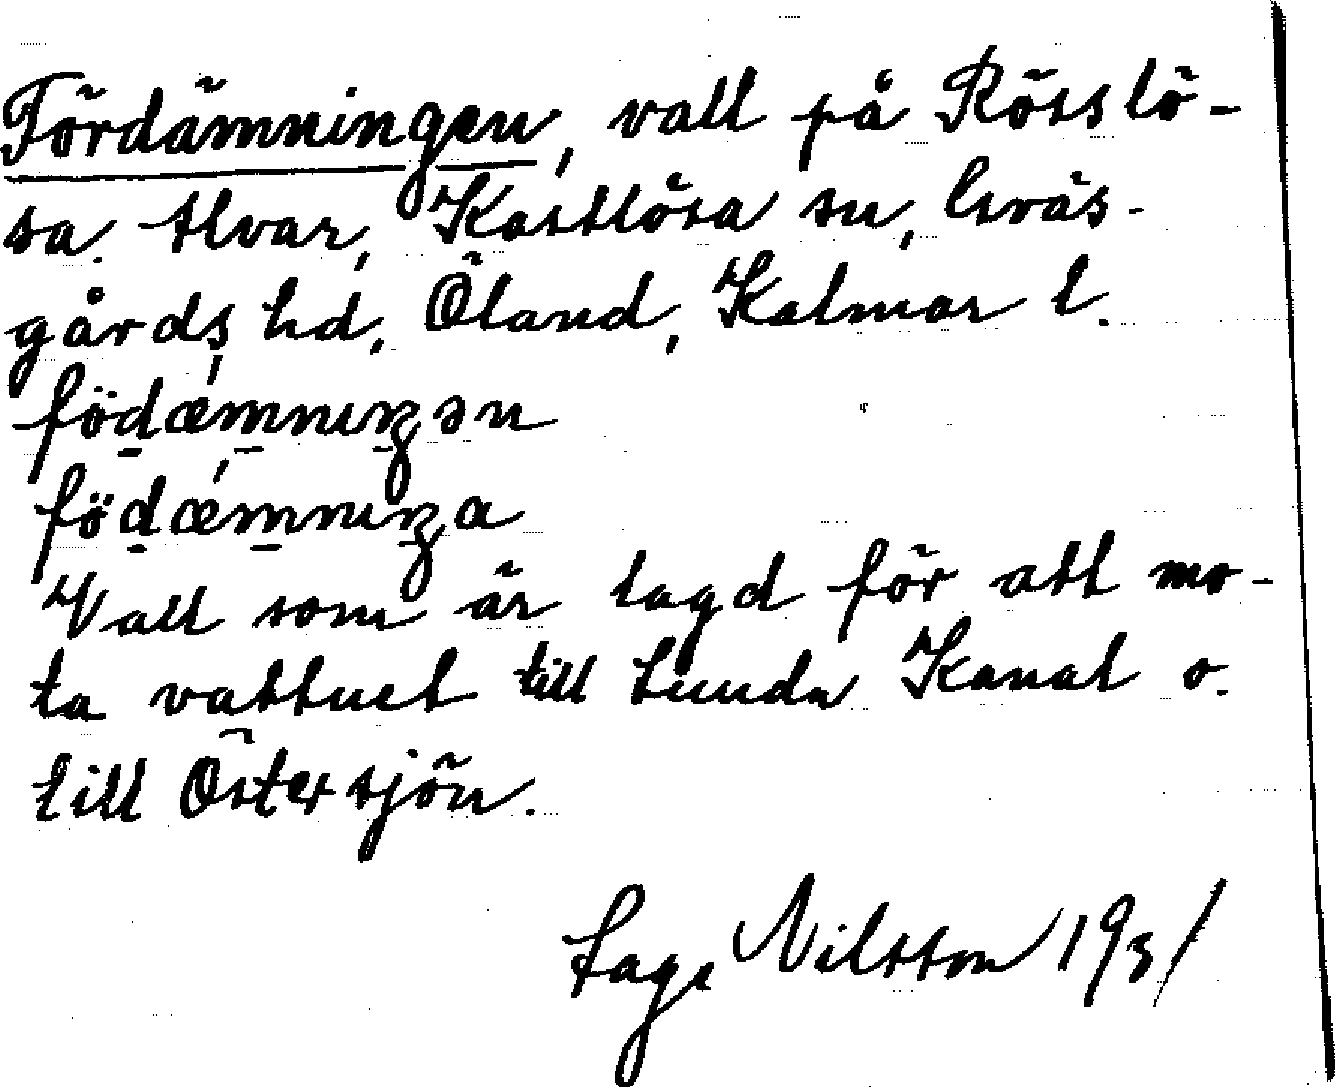 Fördämningen, vall på Röss lö-
sa. Alvar, Kastlösa sn, Gräs-
gårds hd, Öland, Kalmar l.
födæmnıŋən
födæmnıŋa
Vall som är lagd för att mo-
ta vattnet till Lunda Kanal o.
till Östersjön.
Lage Nilsson 1931